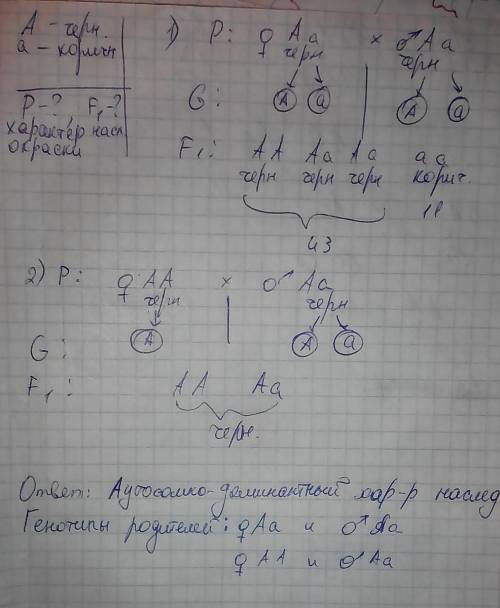 A - черн.
a - коричн
P-? F₁-?
характер насл
окраски
1) P: ♀ Aa × ♂ Aa
черн черн
G: A a A a
F₁: AA Aa Aa aa
черн черн черн корич.
43
2) P: ♀ AA × ♂ Aa
черн черн
G: A A a
F₁: AA Aa
черн.
Ответ: Аутосомно-доминантный хар-р наслед
Генотипы родителей: ♀ Aa и ♂ Aa
♀ AA и ♂ Aa